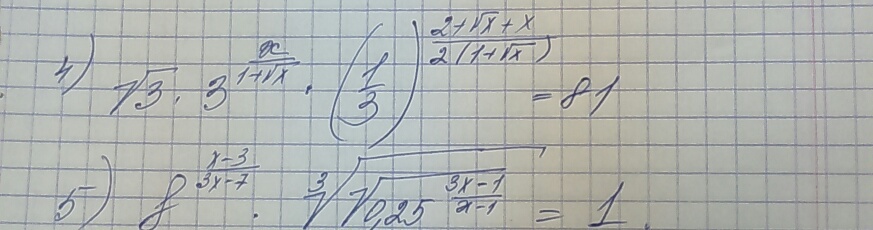 4) √3 · 3^(x/(1+√x)) · (1/3)^((2+√x+x)/(2(1+√x))) = 81
5) 8^((x-3)/(3x-7)) · ∛(√(0,25^((3x-1)/(x-1)))) = 1.